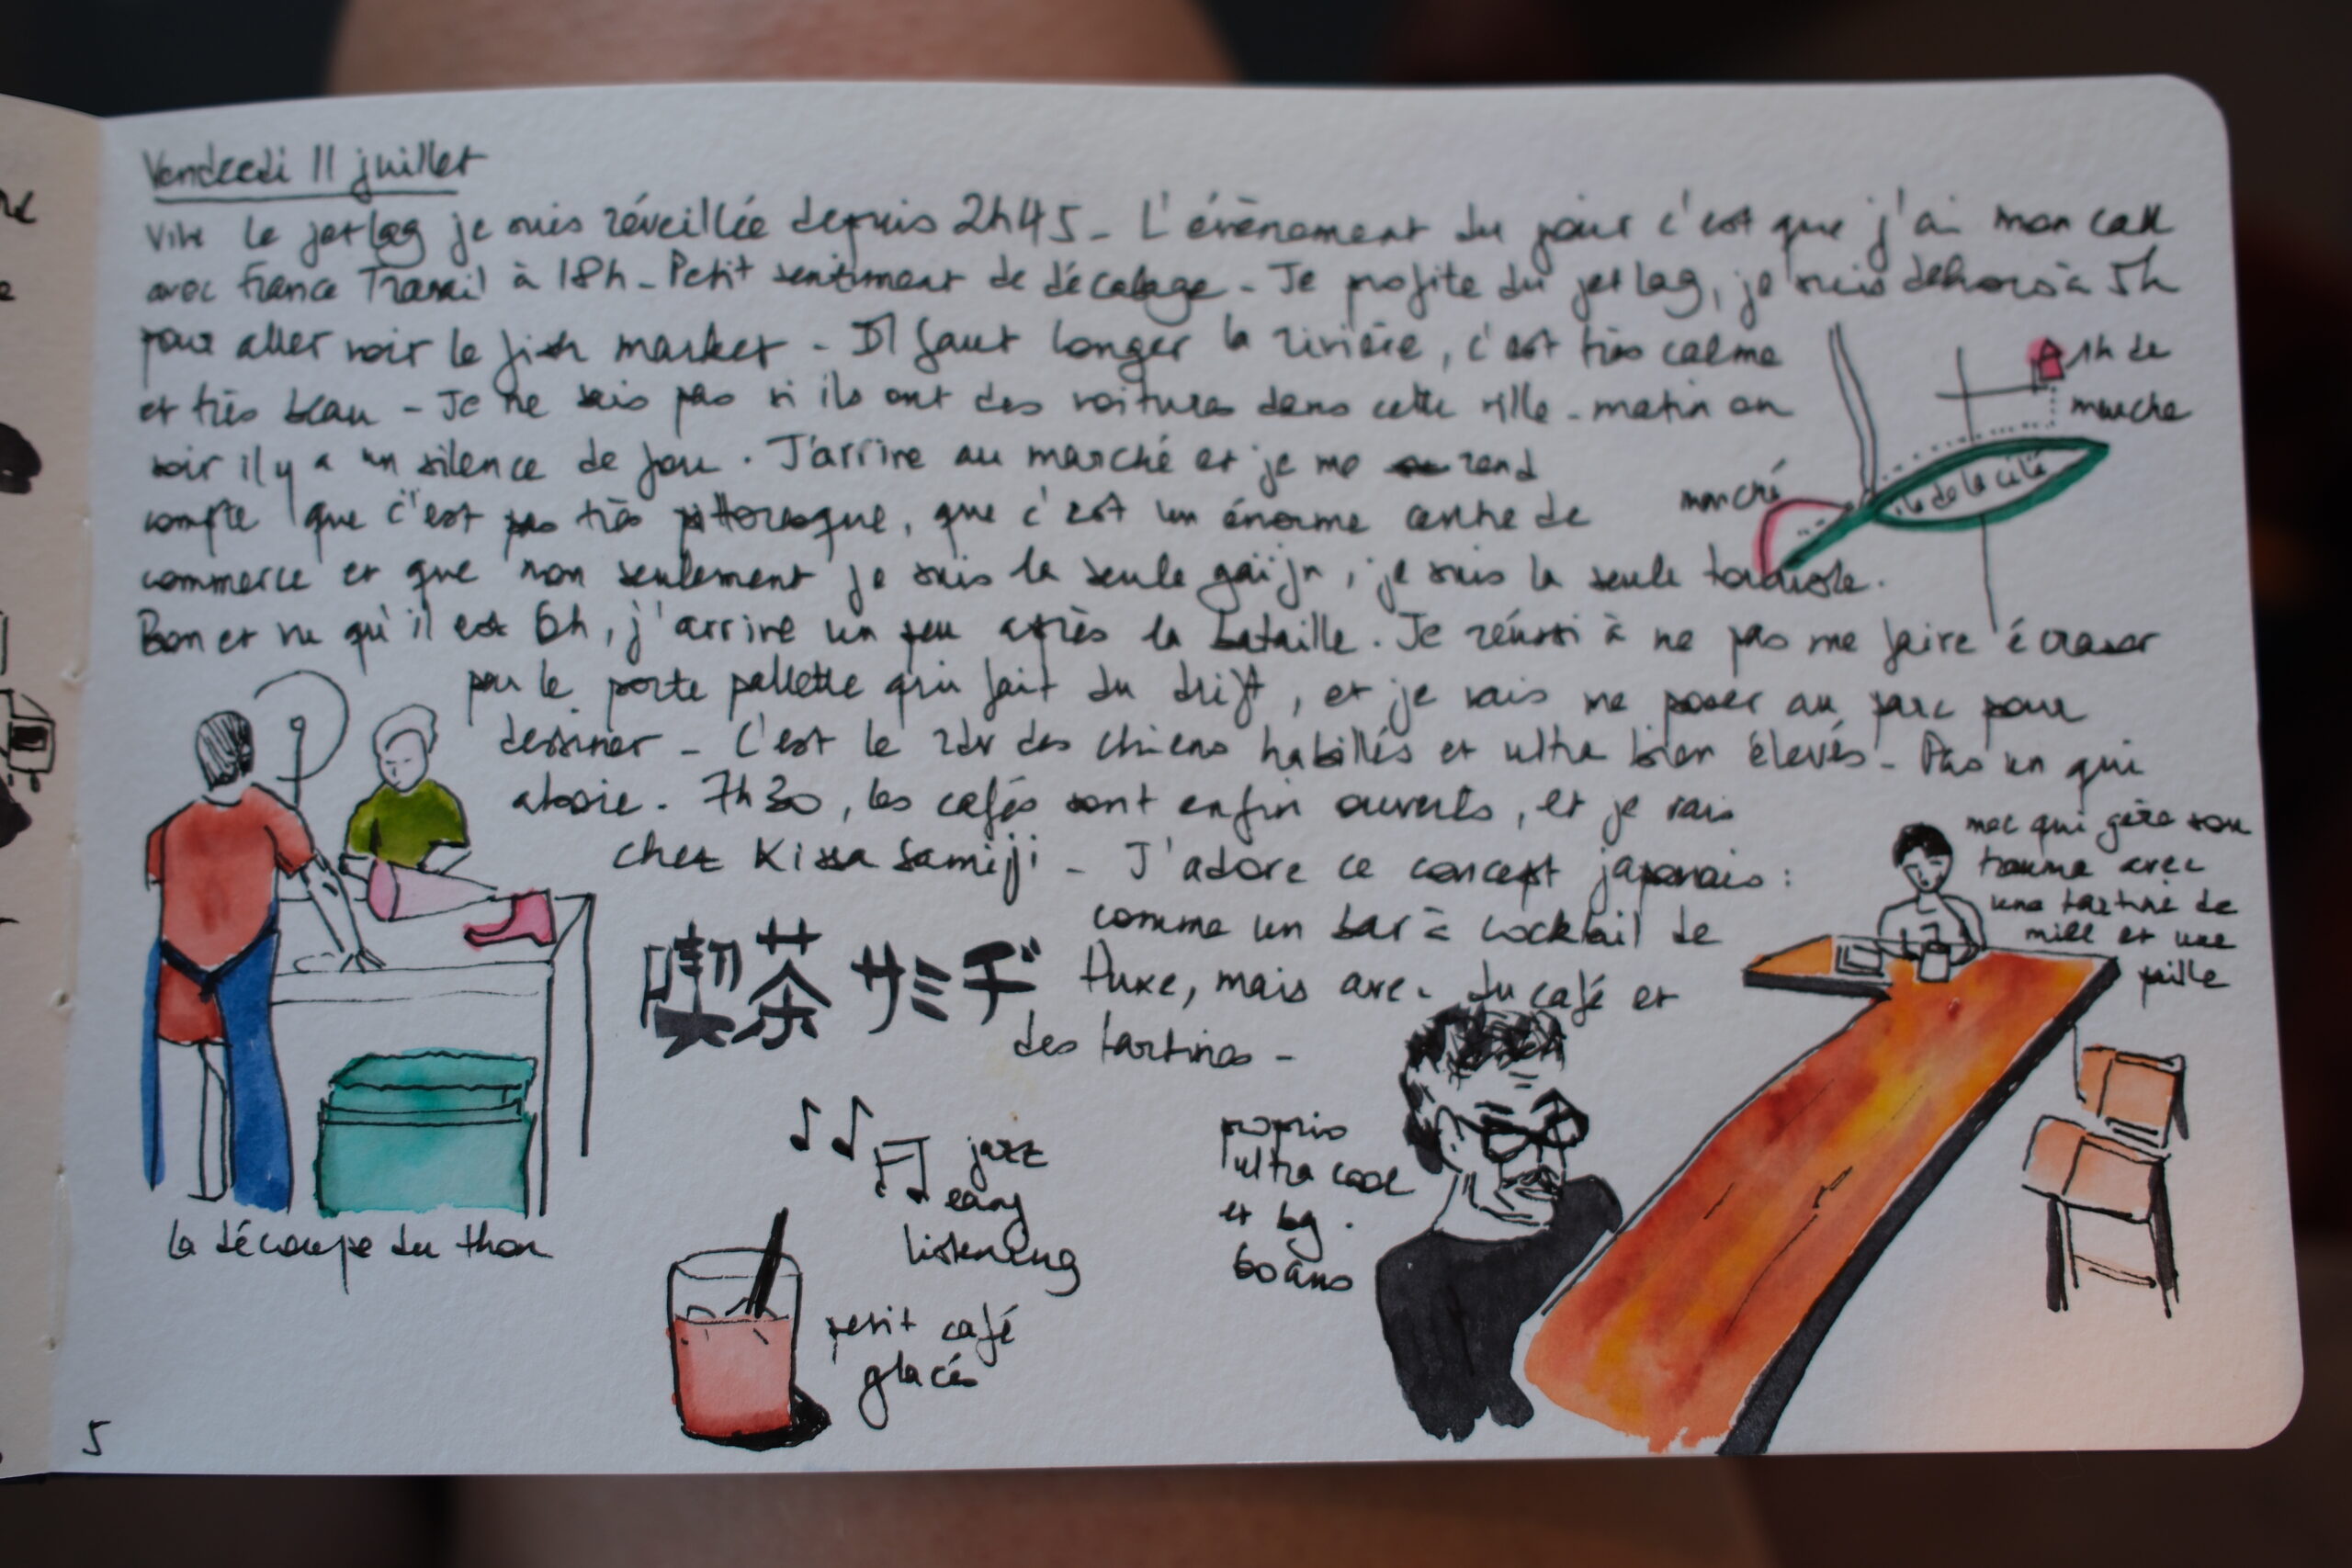 Vendredi 11 juillet
Vive le jetlag je suis réveillée depuis 2h45 - L'évènement du jour c'est que j'ai mon call
avec France Travail à 18h - Petit sentiment de décalage - Je profite du jetlag, je suis dehors à 5h
pour aller voir le fish market - Il faut longer la rivière, c'est très calme
et très beau - Je ne sais pas si ils ont des voitures dans cette ville - matin ou
soir il y a un silence de fou. J'arrive au marché et je me rend
compte que c'est pas très pittoresque, que c'est un énorme centre de
commerce et que non seulement je suis la seule gaïjn, je suis la seule touriste.
Bon et vu qu'il est 6h, j'arrive un peu après la bataille. Je réussi à ne pas me faire écraser
par le porte pallette qui fait du drift, et je vais me poser au parc pour
dessiner - C'est le rdv des chiens habillés et ultra bien élevés - Pas un qui
aboie. 7h30, les cafés sont enfin ouverts, et je vais
chez Kissa Samiji - J'adore ce concept japonais :
comme un bar à cocktail de
luxe, mais avec du café et
des tartines -
1h de
marche
île de la cité
marché
喫茶サミヂ
la découpe du thon
jazz
easy
listening
petit café
glacé
proprio
ultra cool
et bg.
60 ans
mec qui gère son
trauma avec
une tartine de
miel et une
paille
5